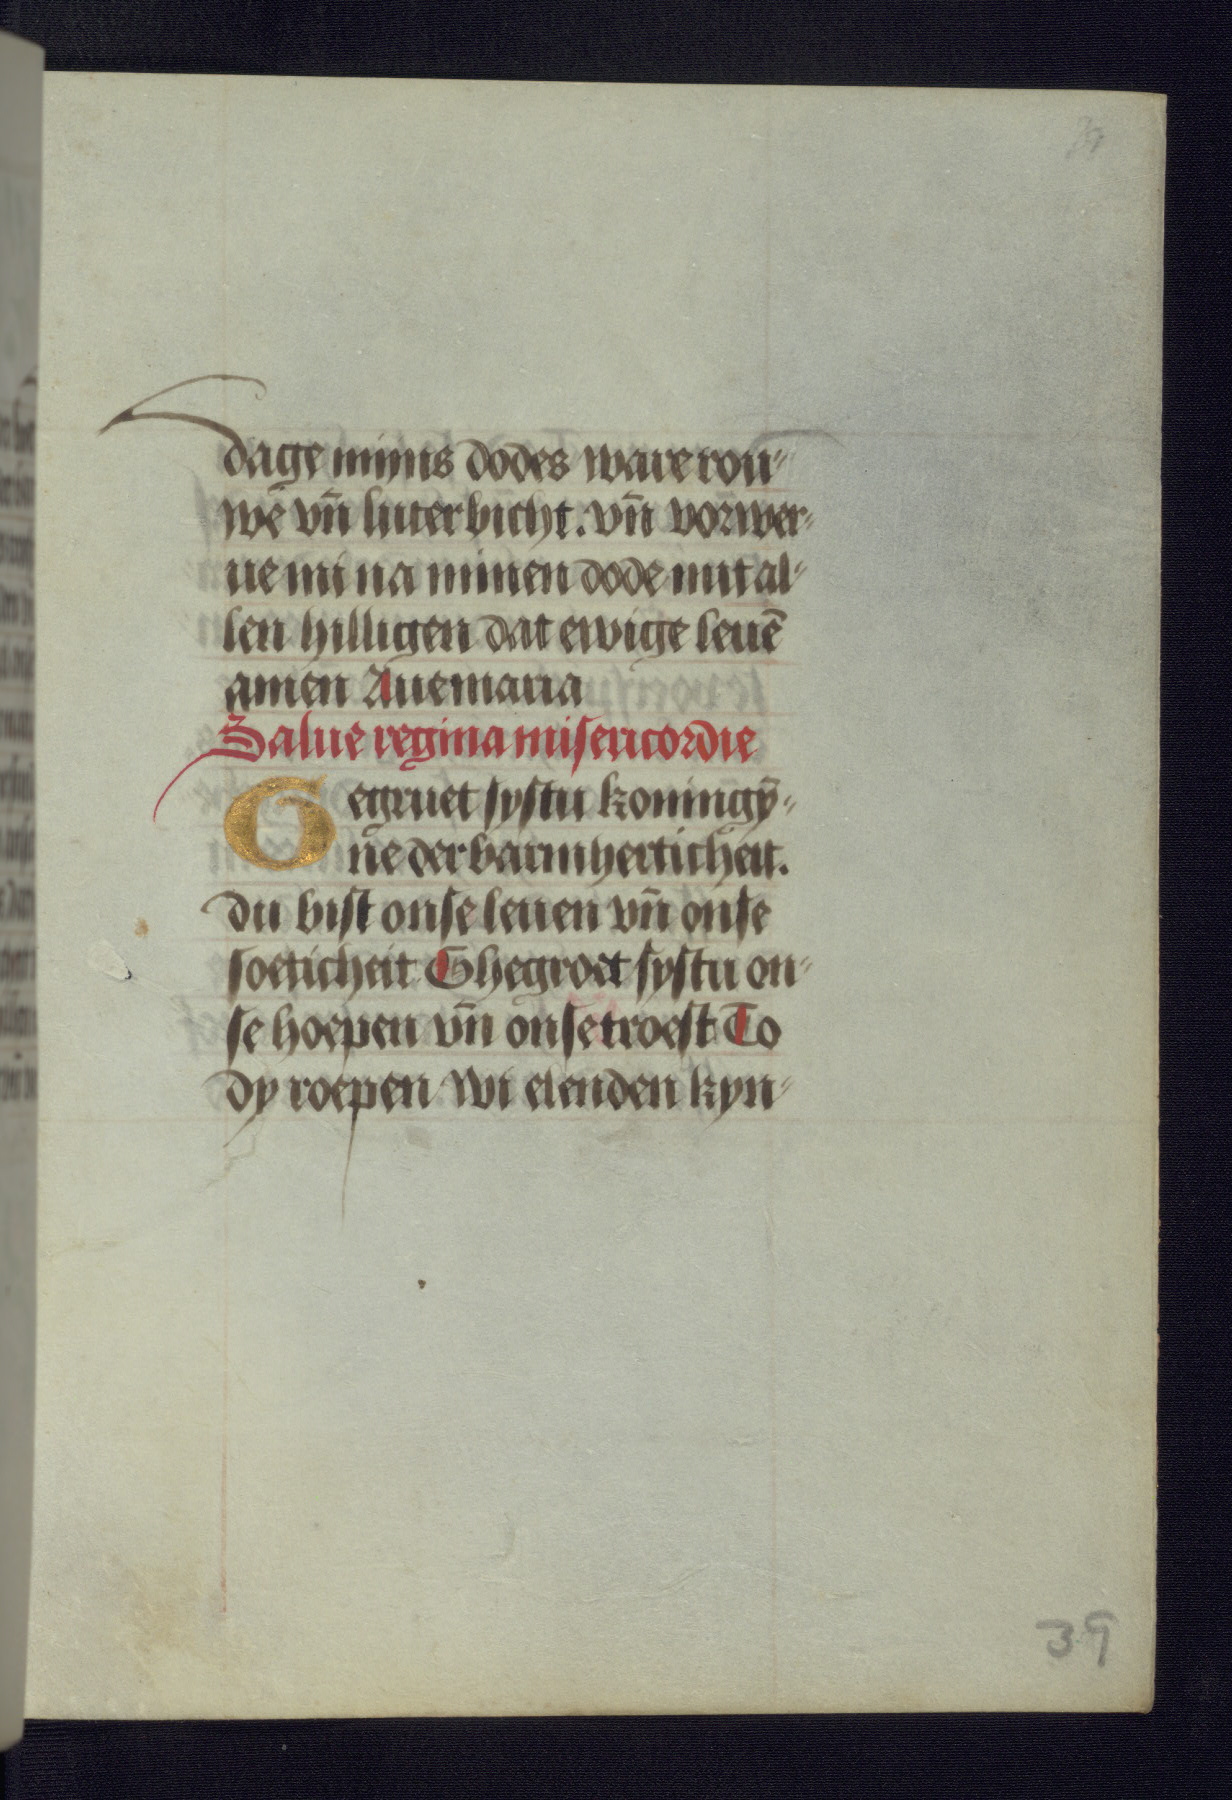 dage mijns dodes ware rou-
wē vn̄ luter bicht. vn̄ vorwer-
ue mi na minen dode mit al-
len hilligen dat ewige leuē
amen Aue maria
Salue regina misericordie
Gegruet systu koningȳ-
ne der barmherticheit.
du bist onse leuen vn̄ onse
soeticheit Ghegroet systu on-
se hoepen vn̄ onse troest To
dy roepen wi elenden kyn-
39